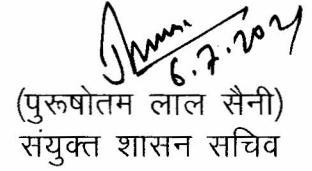 6.7.2021
(पुरूषोतम लाल सैनी)
संयुक्त शासन सचिव